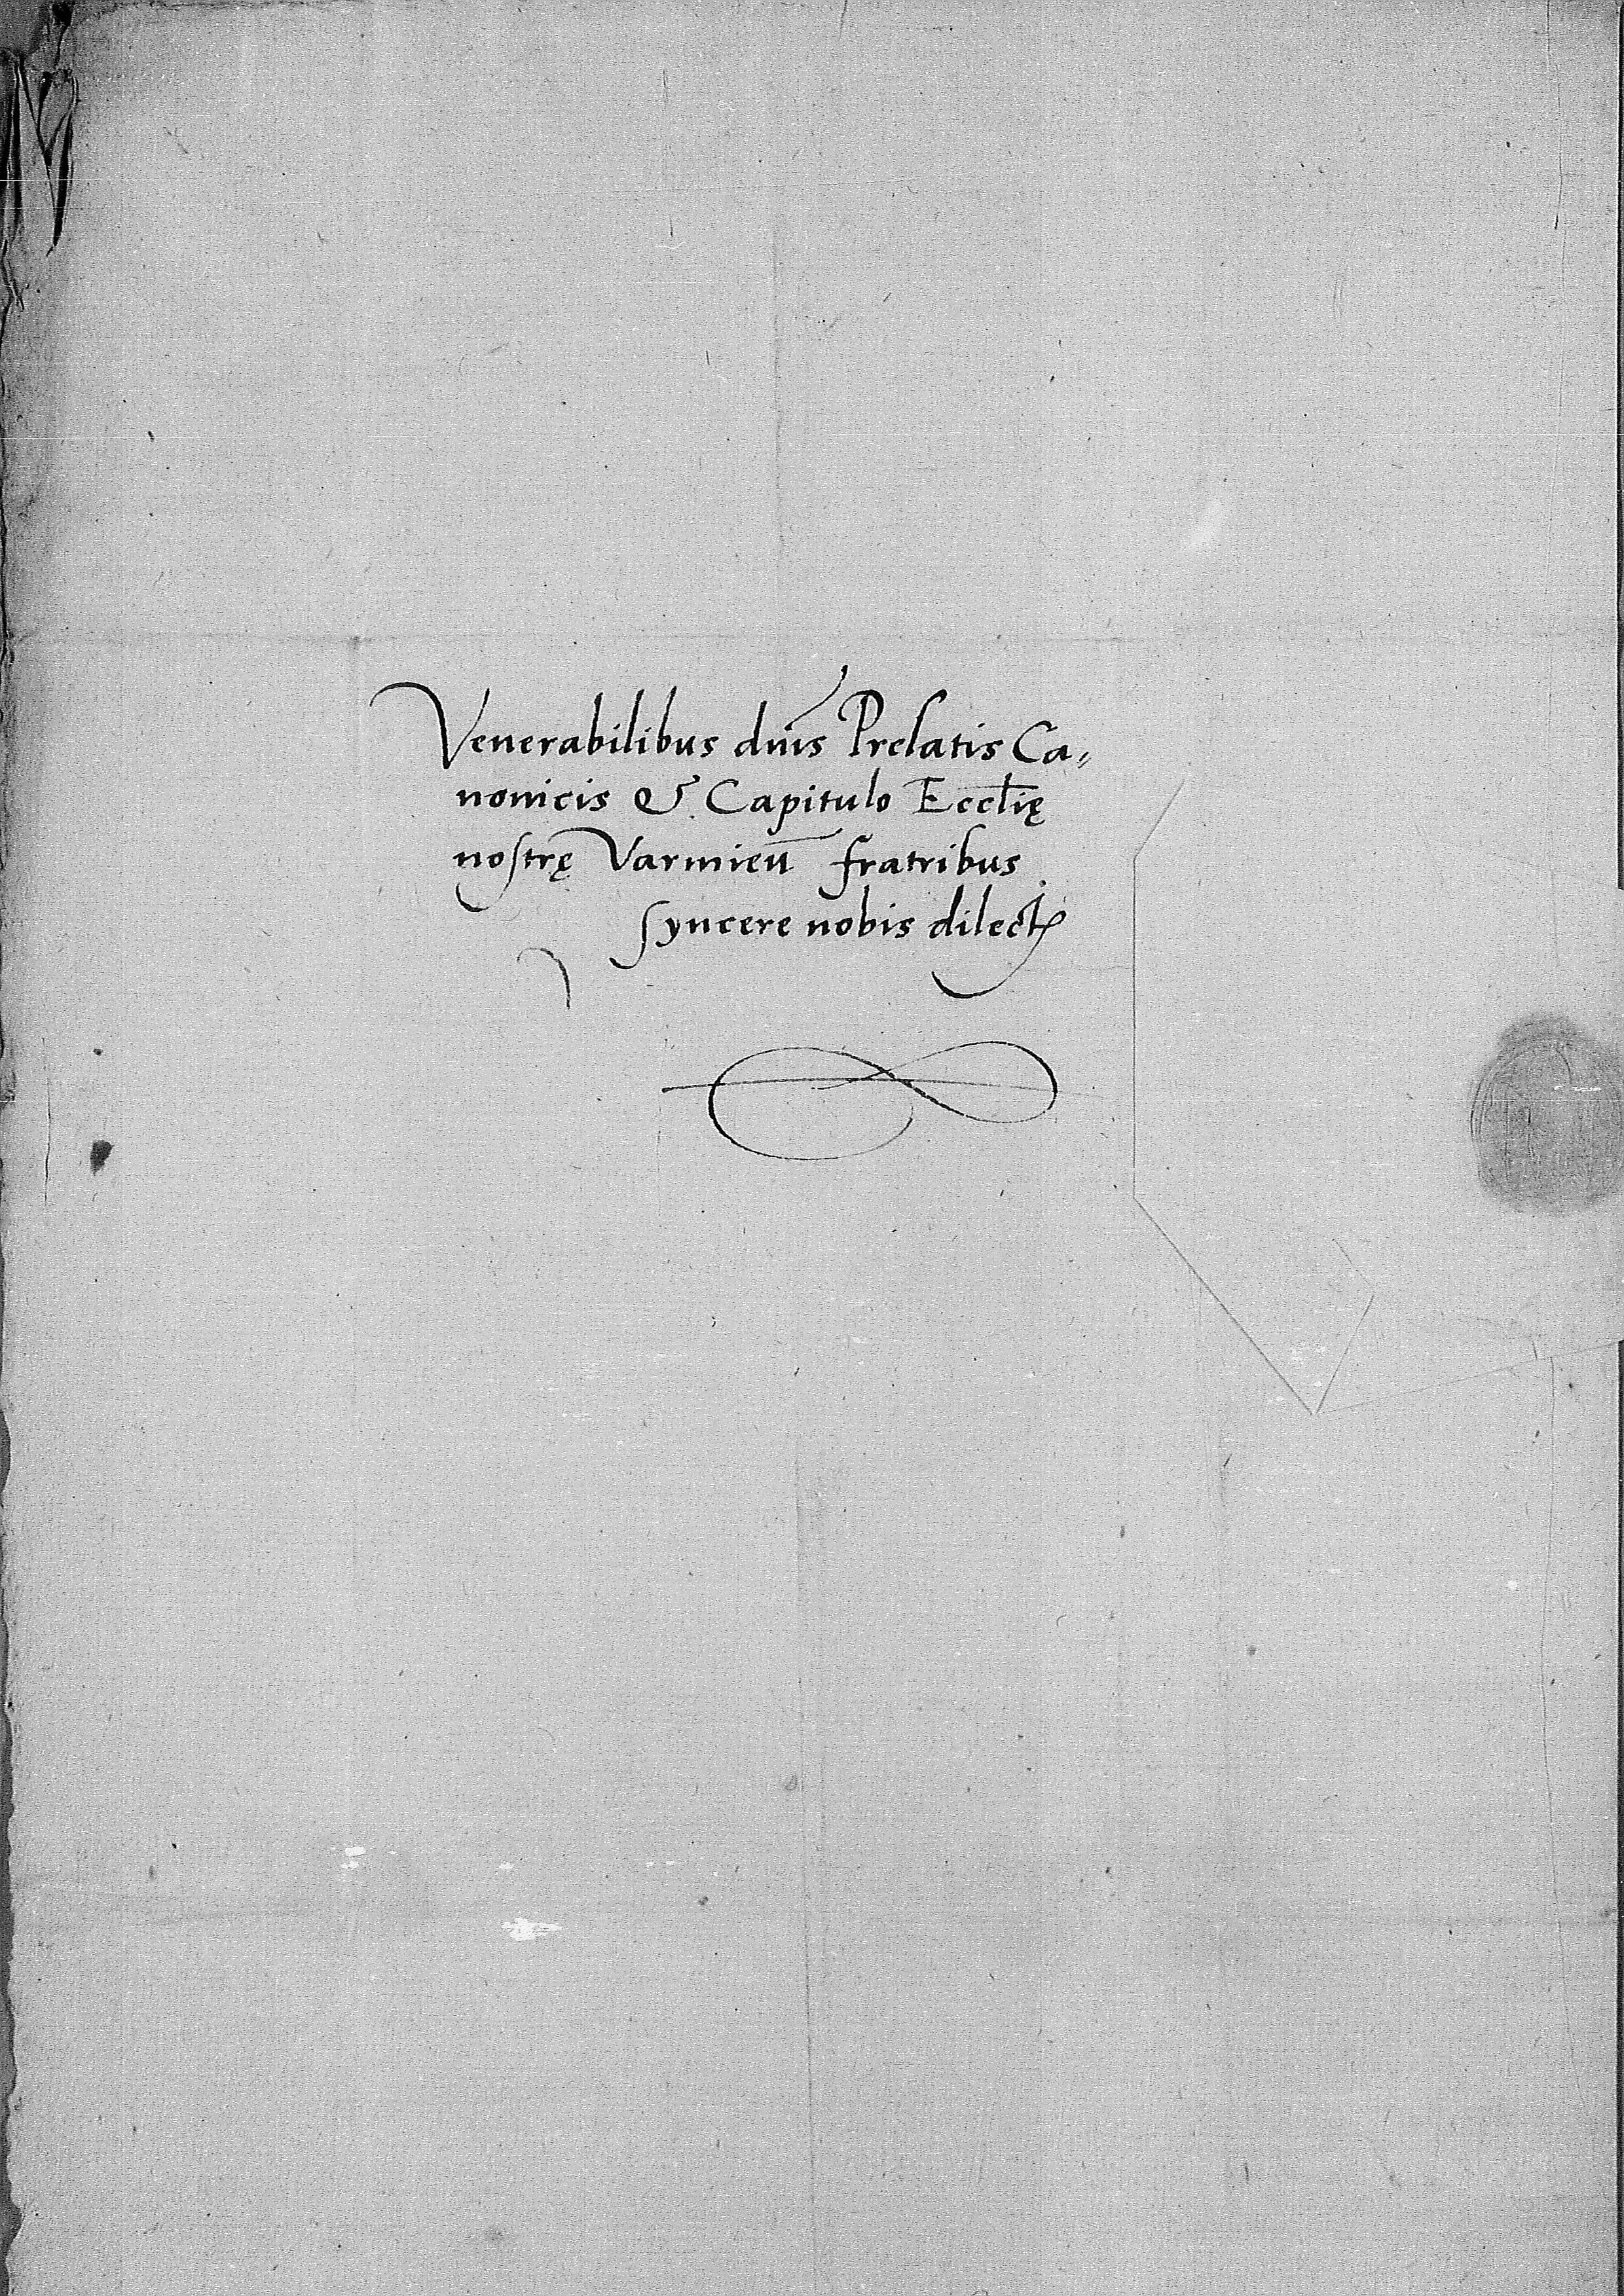 Venerabilibus dnis Prelatis Ca„
nonicis & Capitulo Eccłię
noſtrę Varmień fratribus
ſyncere nobis dilectꝭ